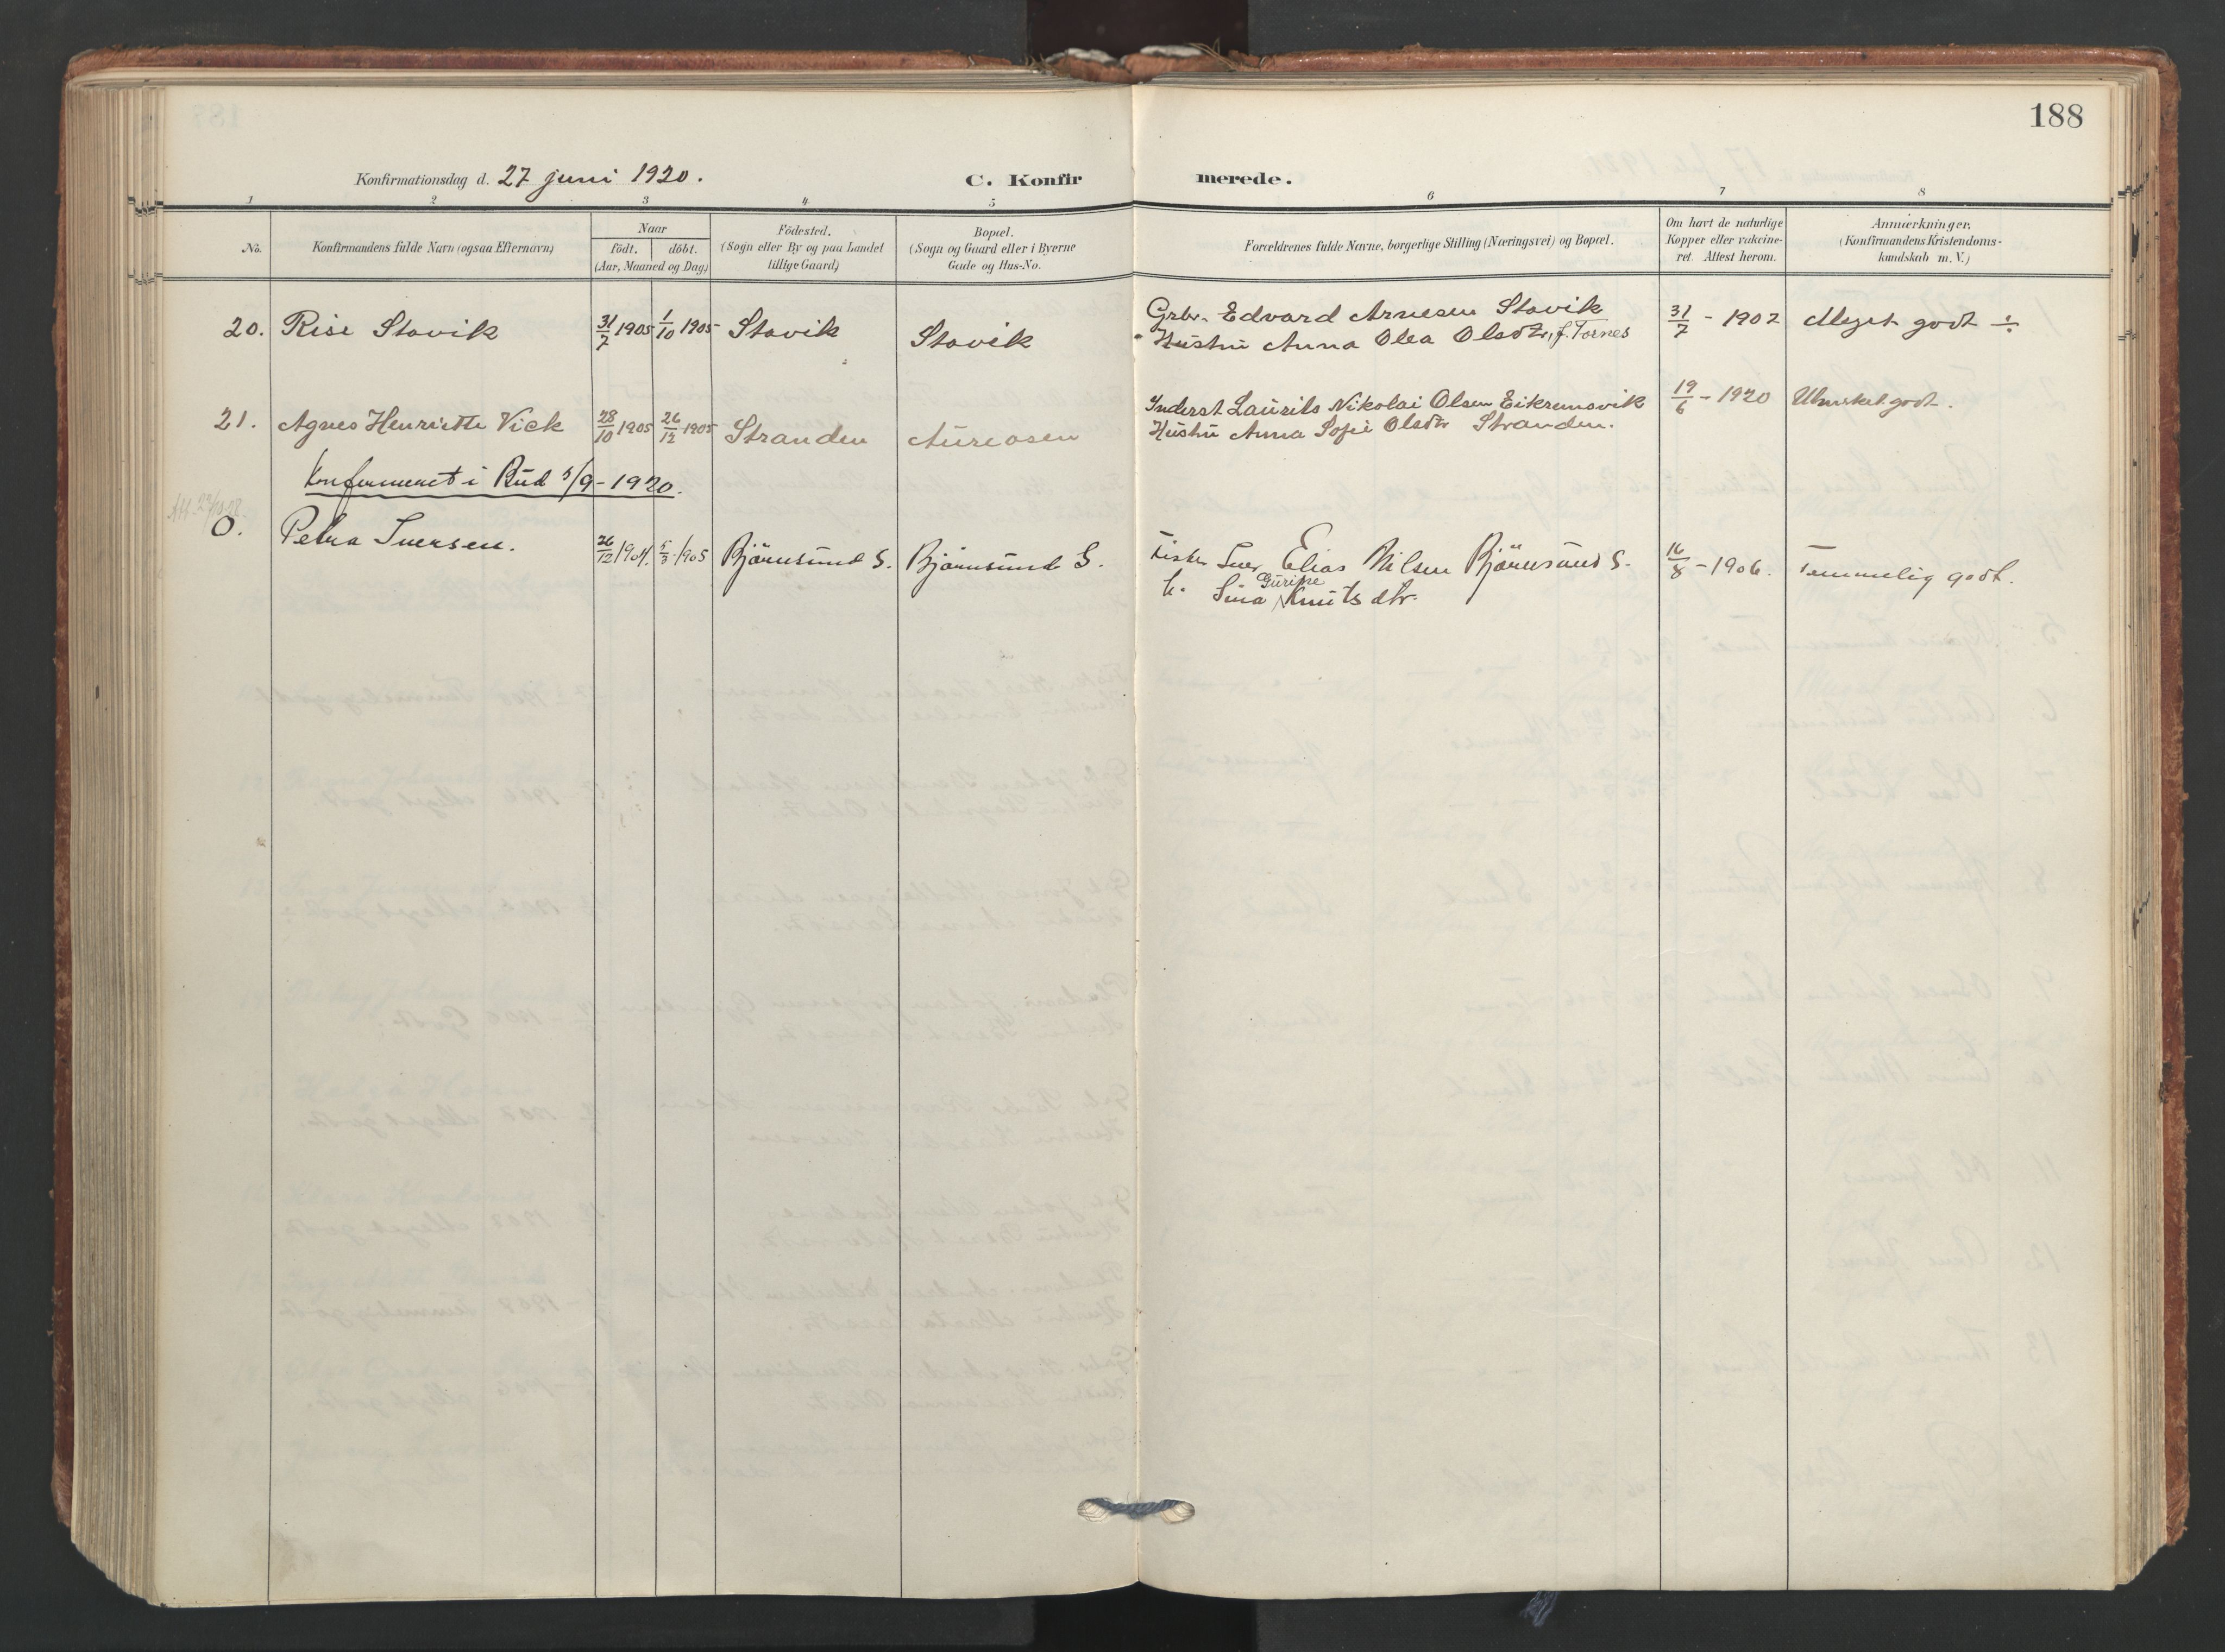 188
Konfirmationsdag d. 27 juni 1920.
C. Konfirmerede.
1 2 3 4 5 6 7 8
No.
Konfirmandens fulde Navn (ogsaa Efternavn)
Naar
födt. döbt.
(Aar, Maaned og Dag)
Födested.
(Sogn eller By og paa Landet
tillige Gaard)
Bopæl.
(Sogn og Gaard eller i Byerne
Gade og Hus-No.
Forældrenes fulde Navne, borgerlige Stilling (Næringsvei) og Bopæl.
Om havt de naturlige
Kopper eller vakcine-
ret. Attest herom.
Anmærkninger.
(Konfirmandens Kristendoms-
kundskab m. V.)
20. Rise Stavik 31/7 1905 1/10 1905 Stavik Stavik
Grbr. Edvard Arnesen Stavik
Hustru Anna Olea Olsdtr, f. Tornes
31/7 - 1907 Meget godt ÷
21. Agnes Henriette Vick 28/10 1905 26/12 1905 Stranden Aureosen
Inderst Laurits Nikolai Olsen Eikremsvik
Hustru Anna Sofie Olsdtr Stranden.
19/6 - 1920 Udmerket godt.
Konfirmeret i Bud 5/9 - 1920.
0. Petra Iversen. 26/12 1904. 5/3 1905 Bjørnsund S. Bjørnsund S.
Fisker Iver Elias Nilsen Bjørnsund S.
h. Sina Gurine Knutsdtr.
16/8 - 1906. Temmelig godt.